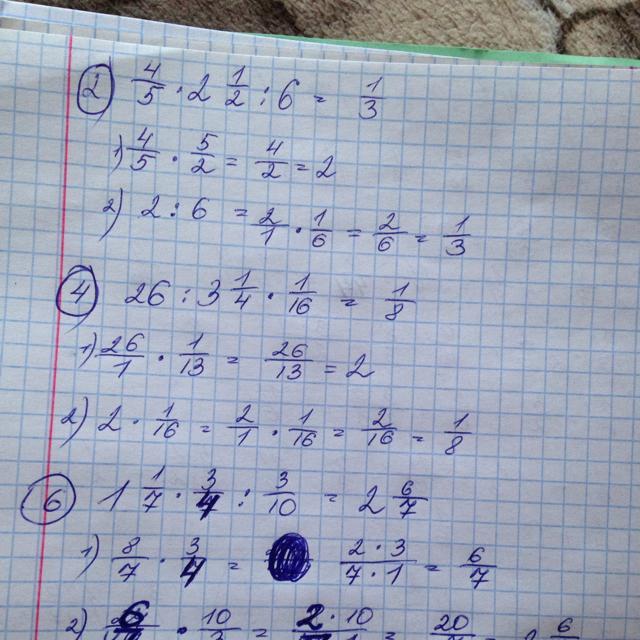 2) 4/5 · 2 1/2 : 6 = 1/3
1) 4/5 · 5/2 = 4/2 = 2
2) 2 : 6 = 2/1 · 1/6 = 2/6 = 1/3
4) 26 : 3 1/4 · 1/16 = 1/8
1) 26/1 · 1/13 = 26/13 = 2
2) 2 · 1/16 = 2/1 · 1/16 = 2/16 = 1/8
6) 1 1/7 · 3/4 : 3/10 = 2 6/7
1) 8/7 · 3/4 = 2·3/7·1 = 6/7
2) 6 · 10 = 2·10 = 20 = 6